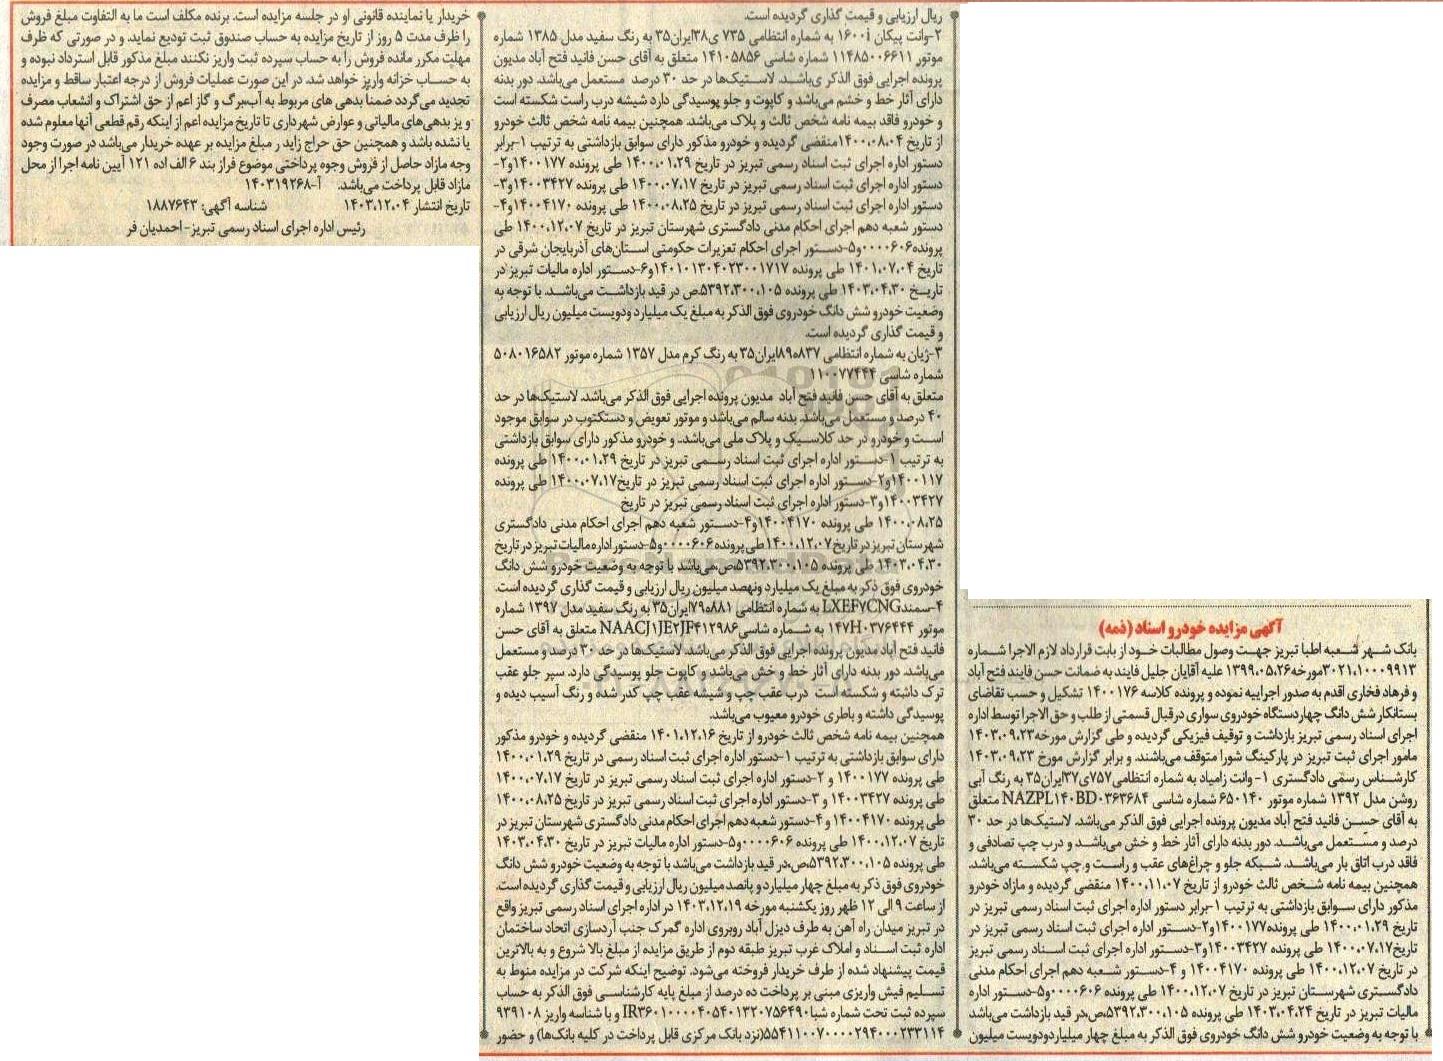 آگهی مزایده خودرو اسناد (ذمه)
بانک شهر شعبه اطبا تبریز جهت وصول مطالبات خود از بابت قرارداد لازم الاجرا شماره
۳۰۲۱،۱۰۰۰۹۹۱۳مورخه۱۳۹۹،۰۵،۲۶ علیه آقایان جلیل فایند به ضمانت حسن فایند فتح آباد
و فرهاد فخاری اقدم به صدور اجراییه نموده و پرونده کلاسه ۱۴۰۰۱۷۶ تشکیل و حسب تقاضای
بستانکار شش دانگ چهاردستگاه خودروی سواری درقبال قسمتی از طلب و حق الاجرا توسط اداره
اجرای اسناد رسمی تبریز بازداشت و توقیف فیزیکی گردیده و طی گزارش مورخه۱۴۰۳،۰۹،۲۳
مامور اجرای ثبت تبریز در پارکینگ شورا متوقف می‌باشند. و برابر گزارش مورخ ۱۴۰۳،۰۹،۲۳
کارشناس رسمی دادگستری ۱- وانت زامیاد به شماره انتظامی۷۵۷ی۳۷ایران۳۵ به رنگ آبی
روشن مدل ۱۳۹۲ شماره موتور ۶۵۰۱۴۰ شماره شاسی NAZPL۱۴۰BD۰۳۶۳۶۸۴ متعلق
به آقای حسن فانید فتح آباد مدیون پرونده اجرایی فوق الذکر می‌باشد. لاستیک‌ها در حد ۳۰
درصد و مستعمل می‌باشد. دور بدنه دارای آثار خط و خش می‌باشد و درب چپ تصادفی و
فاقد درب اتاق بار می‌باشد. شبکه جلو و چراغ‌های عقب و راست و چپ شکسته می‌باشد.
همچنین بیمه نامه شخص ثالث خودرو از تاریخ ۱۴۰۰،۱۱،۰۷ منقضی گردیده و مازاد خودرو
مذکور دارای سوابق بازداشتی به ترتیب ۱-برابر دستور اداره اجرای ثبت اسناد رسمی تبریز در
تاریخ ۱۴۰۰،۰۱،۲۹ طی پرونده۱۴۰۰۱۷۷و۲-دستور اداره اجرای ثبت اسناد رسمی تبریز در
تاریخ۱۴۰۰،۰۷،۱۷ طی پرونده ۱۴۰۰۳۴۲۷و۳-دستور اداره اجرای ثبت اسناد رسمی تبریز
در تاریخ ۱۴۰۰،۱۲،۰۷ طی پرونده ۱۴۰۰۴۱۷۰ و ۴-دستور شعبه دهم اجرای احکام مدنی
دادگستری شهرستان تبریز در تاریخ ۱۴۰۰،۱۲،۰۷ طی پرونده ۰۰۰۰۶۰۶و۵-دستور اداره
مالیات تبریز در تاریخ ۱۴۰۳،۰۴،۲۴ طی پرونده ۵۳۹۲،۳۰۰،۱۰۵،ص،در قید بازداشت می‌باشد
با توجه به وضعیت خودرو شش دانگ خودروی فوق الذکر به مبلغ چهار میلیاردودویست میلیون
ریال ارزیابی و قیمت گذاری گردیده است.
۲-وانت پیکان ۱۶۰۰i به شماره انتظامی ۷۳۵ ی۳۸ایران۳۵ به رنگ سفید مدل ۱۳۸۵ شماره
موتور ۱۱۴۸۵۰۰۶۶۱۱ شماره شاسی ۱۴۱۰۵۸۵۶ متعلق به آقای حسن فانید فتح آباد مدیون
پرونده اجرایی فوق الذکر ی‌باشد. لاستیک‌ها در حد ۳۰ درصد مستعمل می‌باشد. دور بدنه
دارای آثار خط و خشم می‌باشد و کاپوت و جلو پوسیدگی دارد شیشه درب راست شکسته است
و خودرو فاقد بیمه نامه شخص ثالث و پلاک می‌باشد. همچنین بیمه نامه شخص ثالث خودرو
از تاریخ ۱۴۰۰،۰۸،۰۴منقضی گردیده و خودرو مذکور دارای سوابق بازداشتی به ترتیب ۱-برابر
دستور اداره اجرای ثبت اسناد رسمی تبریز در تاریخ ۱۴۰۰،۰۱،۲۹ طی پرونده ۱۴۰۰۱۷۷و۲-
دستور اداره اجرای ثبت اسناد رسمی تبریز در تاریخ ۱۴۰۰،۰۷،۱۷ طی پرونده ۱۴۰۰۳۴۲۷و۳-
دستور اداره اجرای ثبت اسناد رسمی تبریز در تاریخ ۱۴۰۰،۰۸،۲۵ طی پرونده ۱۴۰۰۴۱۷۰و۴-
دستور شعبه دهم اجرای احکام مدنی دادگستری شهرستان تبریز در تاریخ ۱۴۰۰،۱۲،۰۷ طی
پرونده۰۰۰۰۶۰۶و۵-دستور اجرای احکام تعزیرات حکومتی استان‌های آذربایجان شرقی در
تاریخ ۱۴۰۱،۰۷،۰۴ طی پرونده ۱۴۰۱۰۱۳۰۴۰۲۳۰۰۱۷۱۷و۶-دستور اداره مالیات تبریز در
تاریخ ۱۴۰۳،۰۴،۳۰ طی پرونده ۵۳۹۲،۳۰۰،۱۰۵،ص در قید بازداشت می‌باشد. با توجه به
وضعیت خودرو شش دانگ خودروی فوق الذکر به مبلغ یک میلیارد ودویست میلیون ریال ارزیابی
و قیمت گذاری گردیده است.
۳-ژیان به شماره انتظامی ۸۳۷ه۸۹ایران۳۵ به رنگ کرم مدل ۱۳۵۷ شماره موتور ۵۰۸۰۱۶۵۸۲
شماره شاسی ۱۱۰۰۷۷۴۴۴
متعلق به آقای حسن فانید فتح آباد مدیون پرونده اجرایی فوق الذکر می‌باشد. لاستیک‌ها در حد
۴۰ درصد و مستعمل می‌باشد. بدنه سالم می‌باشد و موتور تعویض و دستکتوب در سوابق موجود
است و خودرو در حد کلاسیک و پلاک ملی می‌باشد.. و خودرو مذکور دارای سوابق بازداشتی
به ترتیب ۱-دستور اداره اجرای ثبت اسناد رسمی تبریز در تاریخ ۱۴۰۰،۰۱،۲۹ طی پرونده
۱۴۰۰۱۱۷و۲-دستور اداره اجرای ثبت اسناد رسمی تبریز در تاریخ۱۴۰۰،۰۷،۱۷ طی پرونده
۱۴۰۰۳۴۲۷و۳-دستور اداره اجرای ثبت اسناد رسمی تبریز در تاریخ
۱۴۰۰،۰۸،۲۵ طی پرونده ۱۴۰۰۴۱۷۰و۴-دستور شعبه دهم اجرای احکام مدنی دادگستری
شهرستان تبریز در تاریخ۱۴۰۰،۱۲،۰۷طی پرونده۰۰۰۰۶۰۶و۵-دستور اداره مالیات تبریز در تاریخ
۱۴۰۳،۰۴،۳۰ طی پرونده ۵۳۹۲،۳۰۰،۱۰۵،ص،می‌باشد با توجه به وضعیت خودرو شش دانگ
خودروی فوق ذکر به مبلغ یک میلیارد ونهصد میلیون ریال ارزیابی و قیمت گذاری گردیده است.
۴-سمندLXEF۷CNG به شماره انتظامی ۸۸۱ه۷۹ایران۳۵ به رنگ سفید مدل ۱۳۹۷ شماره
موتور ۱۴۷H۰۳۷۶۴۴۴ به شماره شاسیNAACJ۱JE۲JF۴۱۲۹۸۶ متعلق به آقای حسن
فانید فتح آباد مدیون پرونده اجرایی فوق الذکر می‌باشد. لاستیک‌ها در حد ۳۰ درصد و مستعمل
می‌باشد. دور بدنه دارای آثار خط و خش می‌باشد و کاپوت جلو پوسیدگی دارد. سپر جلو عقب
ترک داشته و شکسته است درب عقب چپ و شیشه عقب چپ کدر شده و رنگ آسیب دیده و
پوسیدگی داشته و باطری خودرو معیوب می‌باشد.
همچنین بیمه نامه شخص ثالث خودرو از تاریخ ۱۴۰۱،۱۲،۱۶ منقضی گردیده و خودرو مذکور
دارای سوابق بازداشتی به ترتیب ۱-دستور اداره اجرای ثبت اسناد رسمی در تاریخ ۱۴۰۰،۰۱،۲۹
طی پرونده ۱۴۰۰۱۷۷ و ۲-دستور اداره اجرای ثبت اسناد رسمی تبریز در تاریخ ۱۴۰۰،۰۷،۱۷
طی پرونده ۱۴۰۰۳۴۲۷ و ۳-دستور اداره اجرای ثبت اسناد رسمی تبریز در تاریخ ۱۴۰۰،۰۸،۲۵
طی پرونده ۱۴۰۰۴۱۷۰ و ۴-دستور شعبه دهم اجرای احکام مدنی دادگستری شهرستان تبریز در
تاریخ ۱۴۰۰،۱۲،۰۷ طی پرونده ۰۰۰۰۶۰۶و۵-دستور اداره مالیات تبریز در تاریخ ۱۴۰۳،۰۴،۳۰
طی پرونده ۵۳۹۲،۳۰۰،۱۰۵،ص،در قید بازداشت می‌باشد با توجه به وضعیت خودرو شش دانگ
خودروی فوق ذکر به مبلغ چهار میلیارد و پانصد میلیون ریال ارزیابی و قیمت گذاری گردیده است.
از ساعت ۹ الی ۱۲ ظهر روز یکشنبه مورخه ۱۴۰۳،۱۲،۱۹ در اداره اجرای اسناد رسمی تبریز واقع
در تبریز میدان راه آهن به طرف دیزل آباد روبروی اداره گمرک جنب آردسازی اتحاد ساختمان
اداره ثبت اسناد و املاک غرب تبریز طبقه دوم از طریق مزایده از مبلغ بالا شروع و به بالاترین
قیمت پیشنهاد شده از طرف خریدار فروخته می‌شود. توضیح اینکه شرکت در مزایده منوط به
تسلیم فیش واریزی مبنی بر پرداخت ده درصد از مبلغ پایه کارشناسی فوق الذکر به حساب
سپرده ثبت تحت شماره شباIR۳۶۰۱۰۰۰۰۴۰۵۴۰۱۳۲۰۷۵۶۴۹۰ و با شناسه واریز ۹۳۹۱۰۸
۵۵۴۱۱۰۰۷۰۰۰۰۲۹۴۰۰۰۲۳۳۱۱۴(نزد بانک مرکزی قابل پرداخت در کلیه بانک‌ها) و حضور
خریدار یا نماینده قانونی او در جلسه مزایده است. برنده مکلف است ما به التفاوت مبلغ فروش
را ظرف مدت ۵ روز از تاریخ مزایده به حساب صندوق ثبت تودیع نماید. و در صورتی که ظرف
مهلت مکرر مانده فروش را به حساب سپرده ثبت واریز نکنند مبلغ مذکور قابل استرداد نبوده و
به حساب خزانه واریز خواهد شد. در این صورت عملیات فروش از درجه اعتبار ساقط و مزایده
تجدید می‌گردد ضمنا بدهی های مربوط به آب،برگ و گاز اعم از حق اشتراک و انشعاب مصرف
و یز بدهی‌های مالیاتی و عوارض شهرداری تا تاریخ مزایده اعم از اینکه رقم قطعی آنها معلوم شده
یا نشده باشد و همچنین حق حراج زاید ر مبلغ مزایده بر عهده خریدار می‌باشد در صورت وجود
وجه مازاد حاصل از فروش وجوه پرداختی موضوع فراز بند ۶ الف اده ۱۲۱ آیین نامه اجرا از محل
مازاد قابل پرداخت می‌باشد. آ-۱۴۰۳۱۹۲۶۸
تاریخ انتشار ۱۴۰۳،۱۲،۰۴ شناسه آگهی: ۱۸۸۷۶۴۳
رئیس اداره اجرای اسناد رسمی تبریز- احمدیان فر